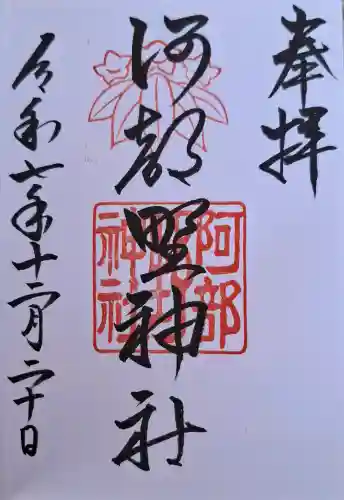 奉拝
阿部野神社
阿部
野
神社
令和七年十二月二十日